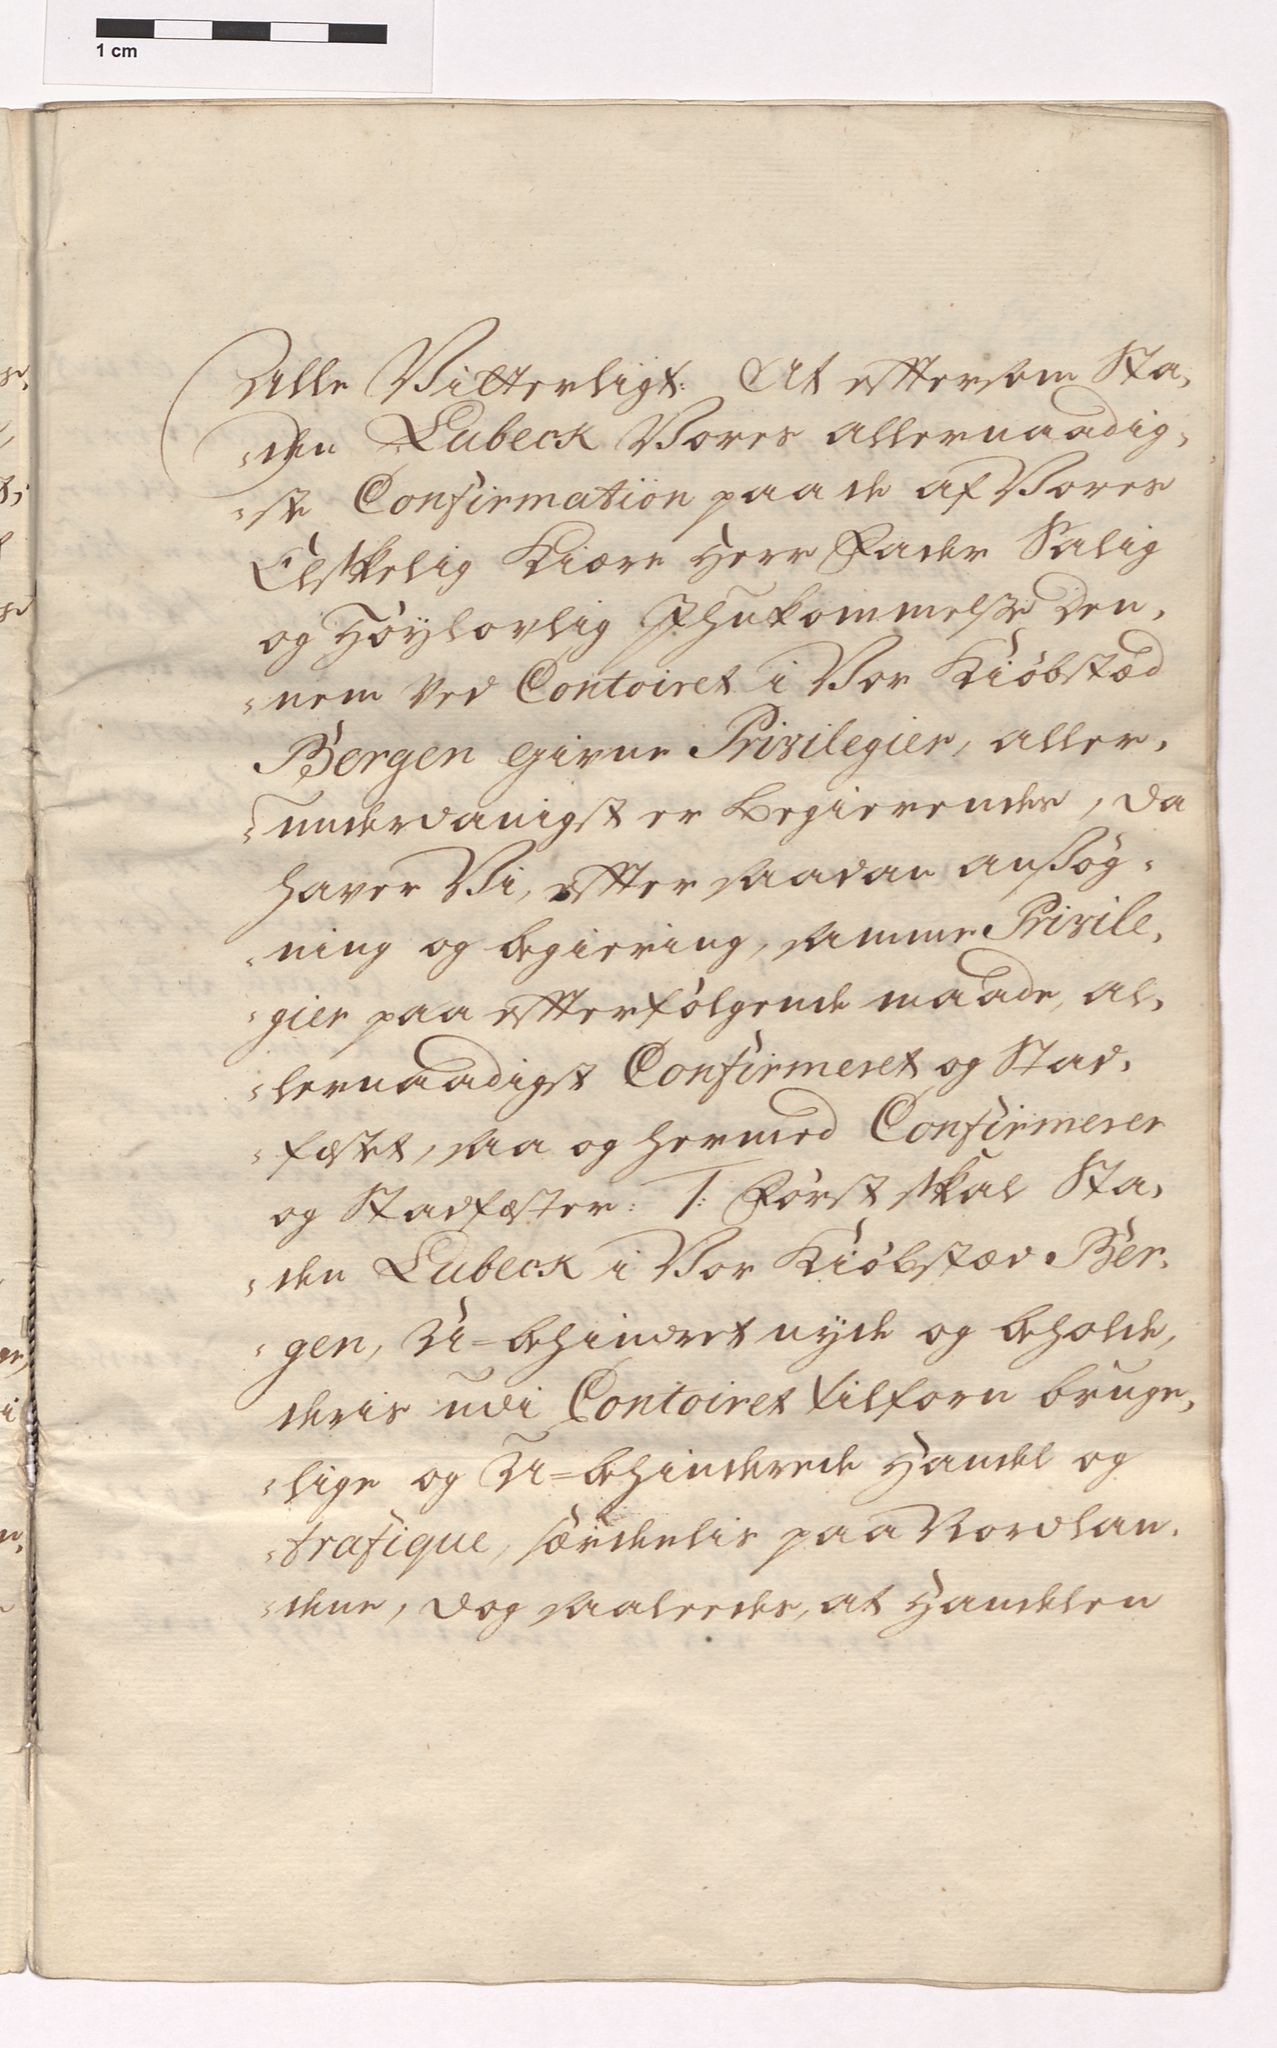 1 cm
Alle Vitterligt: At eftersom Sta,
„den Lubeck Vores allernaadig,
„ste Confirmation paa de af Vores
Elskelig Kiære Herr Fader Salig
og Höylovlig Ihukommelse den,
„nem ved Contoiret i Vor Kiöbstæd
Bergen givne Privilegier, aller,
„underdanigst er begierendes, da
haver Vi, effter saadan ansög,
„ning og begiering, samme Privile,
„gier paa effterfölgende maade, al,
„lernaadigst Confirmeret og Stad,
„fæstet, saa og hermed Confirmerer
og Stadfæster: 1: Först skal Sta,
„den Lubeck i Vor Kiöbstæd Ber,
„gen, U=behindret nyde og beholde,
deris udi Contoiret tilforn bruge,
„lige og U=behinderede Handel og
„trafique, særdelis paa Nordlan,
„dene, dog saaleedes, at Handelen